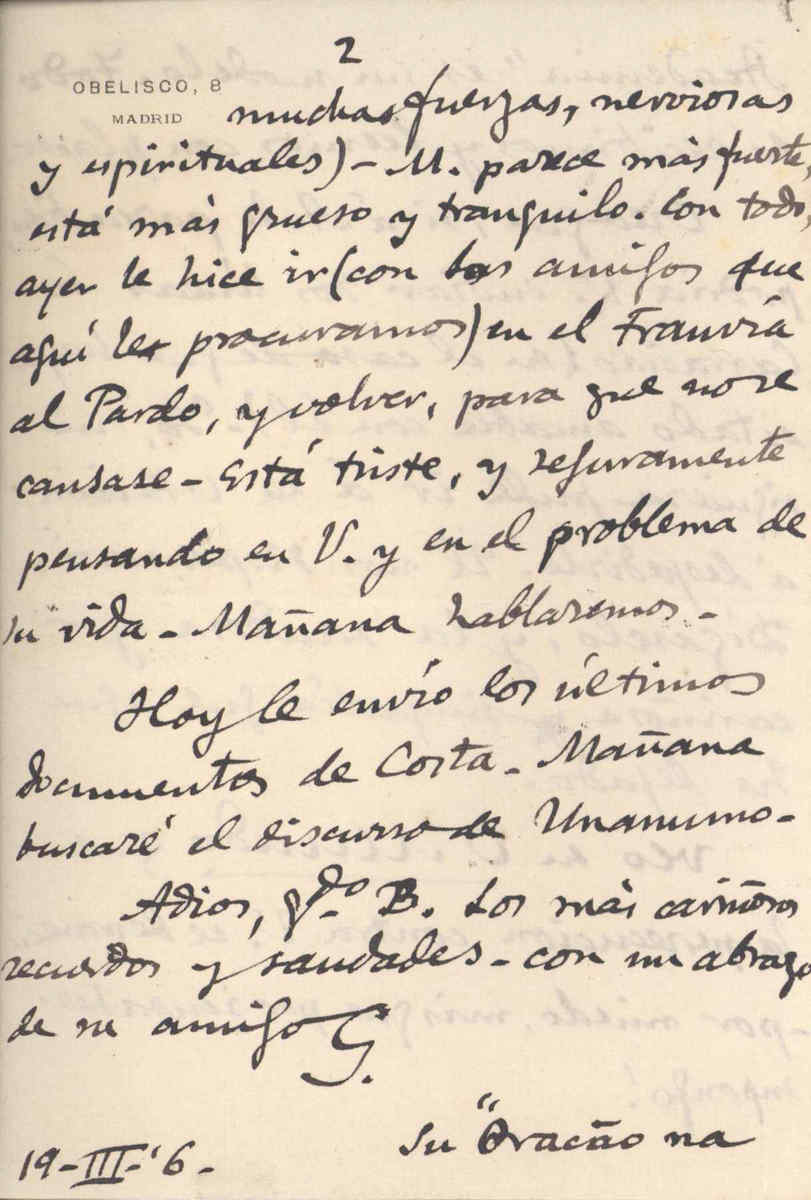 2
OBELISCO, 8
MADRID
muchas fuerzas, nerviosas
y espirituales) - M. parece más fuerte,
está más grueso y tranquilo. Con todo,
ayer le hice ir (con los amigos que
aquí le procuramos) en el Tranvía
al Pardo, y volver, para que no se
cansase - Está triste, y seguramente
pensando en V. y en el problema de
su vida - Mañana hablaremos -
Hoy le envío los últimos
documentos de Costa - Mañana
buscaré el discurso de Unamuno -
Adios, qdo B. Los más cariñosos
recuerdos y saudades - con un abrazo
de su amigo G.
19-III-'6-
Su "Oração na